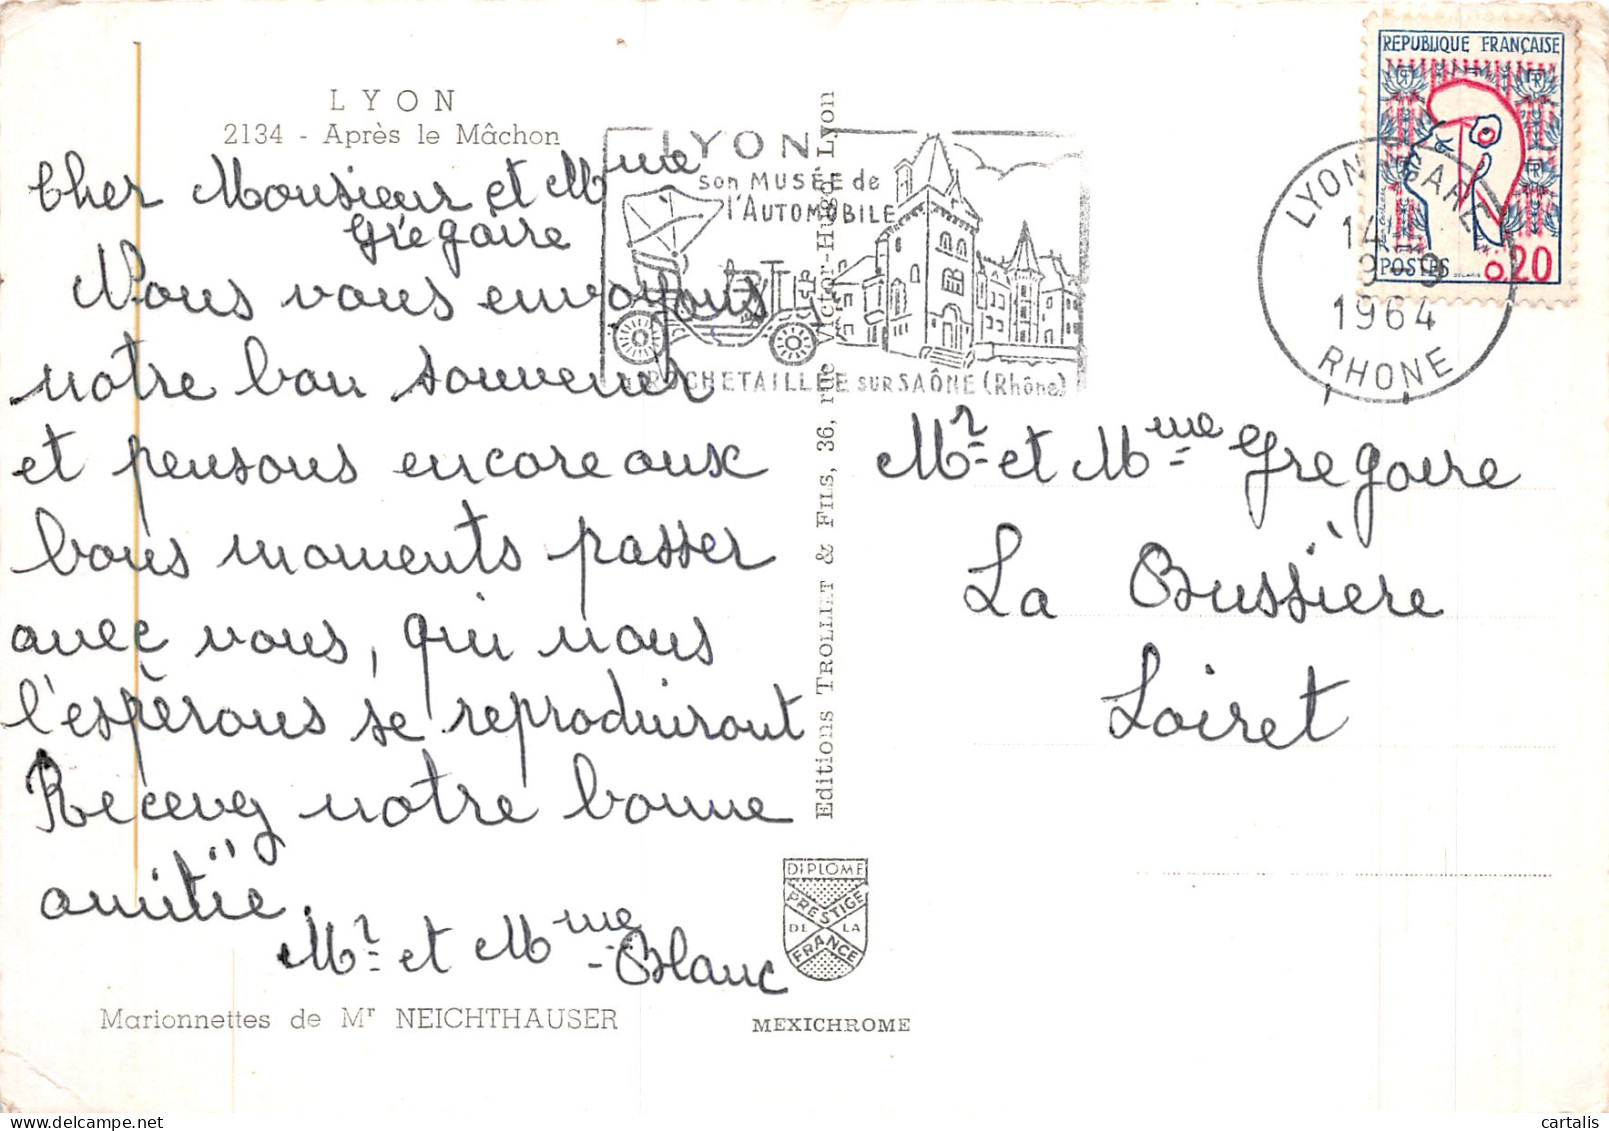 LYON
2134 - Après le Mâchon
Cher Monsieur et Mme
Grégoire
Nous vous envoyons
notre bon souvenir
et pensons encore aux
bons moments passer
avec vous, qui nous
l'espèrons se reproduiront
Recevez notre bonne
amitié.
Mr et Mme Blanc
Marionnettes de Mr NEICHTHAUSER
LYON
son MUSÉE de
l'AUTOMOBILE
à ROCHETAILLEE SUR SAÔNE (Rhône)
Editions TROLLIET & FILS, 36, rue Victor-Hugo, Lyon
DIPLOME
PRESTIGE
DE LA
FRANCE
MEXICHROME
REPUBLIQUE FRANÇAISE
POSTES 0,20
LYON GARE
14H
9-9
1964
RHONE
Mr et Mme Grégoire
La Bussière
Loiret
cartalis